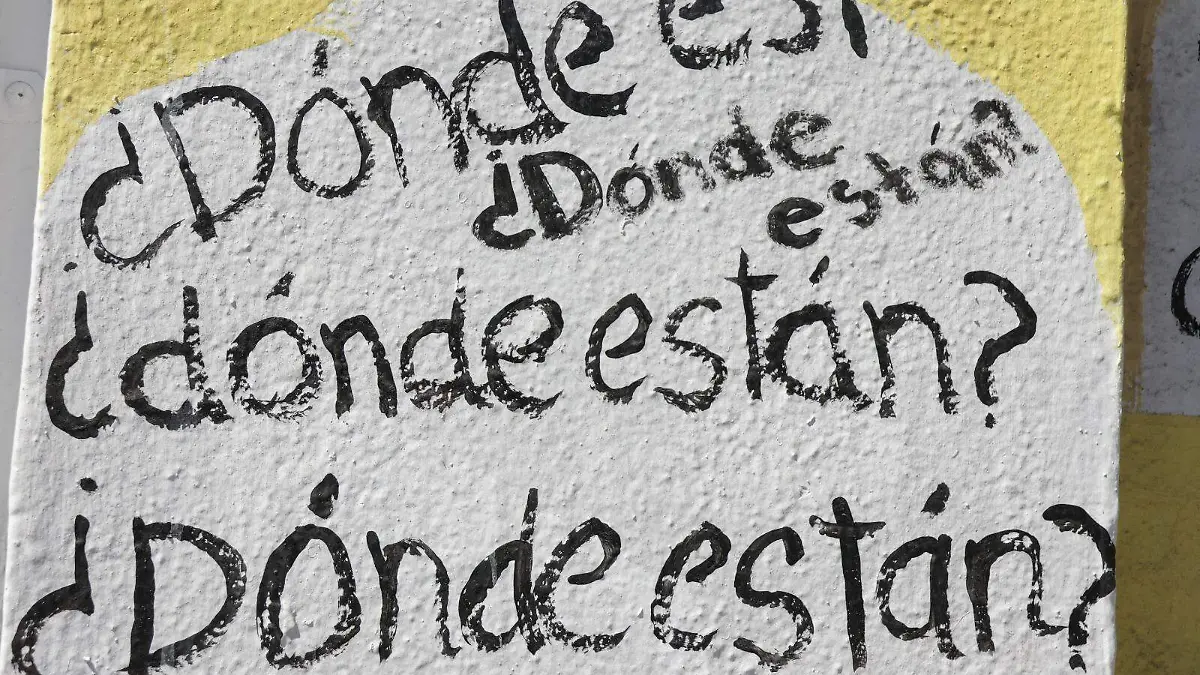 ¿Dónde est
¿Dónde
están?
¿dónde están?
¿Dónde están?